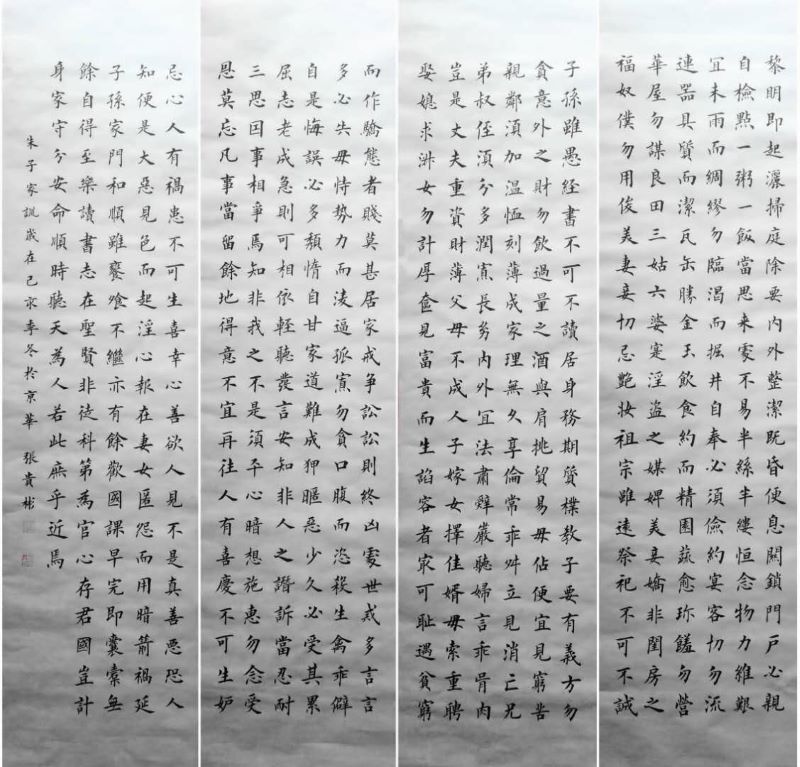 黎明即起灑掃庭除要内外整潔既昏便息關鎖門戶必親
自檢點一粥一飯當思来處不易半絲半縷恒念物力維艱
宜未雨而綢繆勿臨渴而掘井自奉必須儉約宴客切勿流
連器具質而潔瓦缶勝金玉飲食約而精園蔬愈珎饈勿營
華屋勿謀良田三姑六婆寔淫盜之媒婢美妾嬌非閨房之
福奴僕勿用俊美妻妾切忌艷妝祖宗雖遠祭祀不可不誠
子孫雖愚经書不可不讀居身務期質樸教子要有義方勿
貪意外之財勿飲過量之酒與肩挑貿易毋佔便宜見窮苦
親鄰湏加温恤刻薄成家理無久享倫常乖舛立見消亡兄
弟叔侄湏分多潤寡長幼内外宜法肅辭嚴聽婦言乖骨肉
豈是丈夫重資財薄父母不成人子嫁女擇佳婿毋索重聘
娶媳求淑女勿計厚奩見富貴而生諂容者㝡可耻遇貧窮
而作驕態者賤莫甚居家戒争訟訟則終凶處世戒多言言
多必失毋恃勢力而凌逼孤寡勿貪口腹而恣殺生禽乖僻
自是悔誤必多頹惰自甘家道難成狎暱惡少久必受其累
屈志老成急則可相依輕聽發言安知非人之譖訴當忍耐
三思因事相爭焉知非我之不是須平心暗想施惠勿念受
恩莫忘凡事當留餘地得意不宜再往人有喜慶不可生妒
忌心人有禍患不可生喜幸心善欲人見不是真善惡恐人
知便是大惡見色而起淫心報在妻女匿怨而用暗箭禍延
子孫家門和順雖饔飧不繼亦有餘歡國課早完即囊橐無
餘自得至樂讀書志在聖賢非徒科第為官心存君國豈計
身家守分安命順時聽天為人若此庶乎近焉
朱子家訓歲在己亥季冬於京華 張貴彬